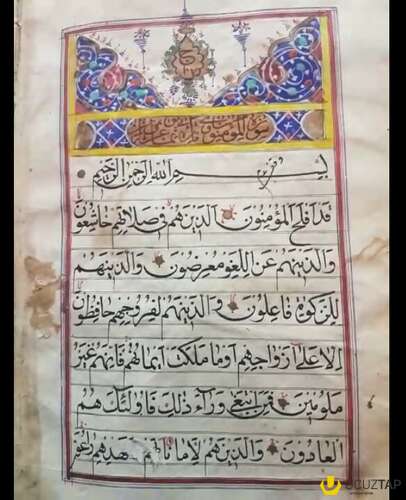 سورة المؤمنون مائة
بسم الله الرحمن الرحيم
قد افلح المؤمنون الذينهم فى صلاتهم خاشعون
والذينهم عن اللغو معرضون والذينهم
للزكوة فاعلون والذينهم لفروجهم حافظون
الا على ازواجهم او ما ملكت ايمانهم فانهم غير
ملومين فمن ابتغى وراء ذلك فاولئك هم
العادون والذينهم لاماناتهم وعهدهم راعو
UCUZTAP